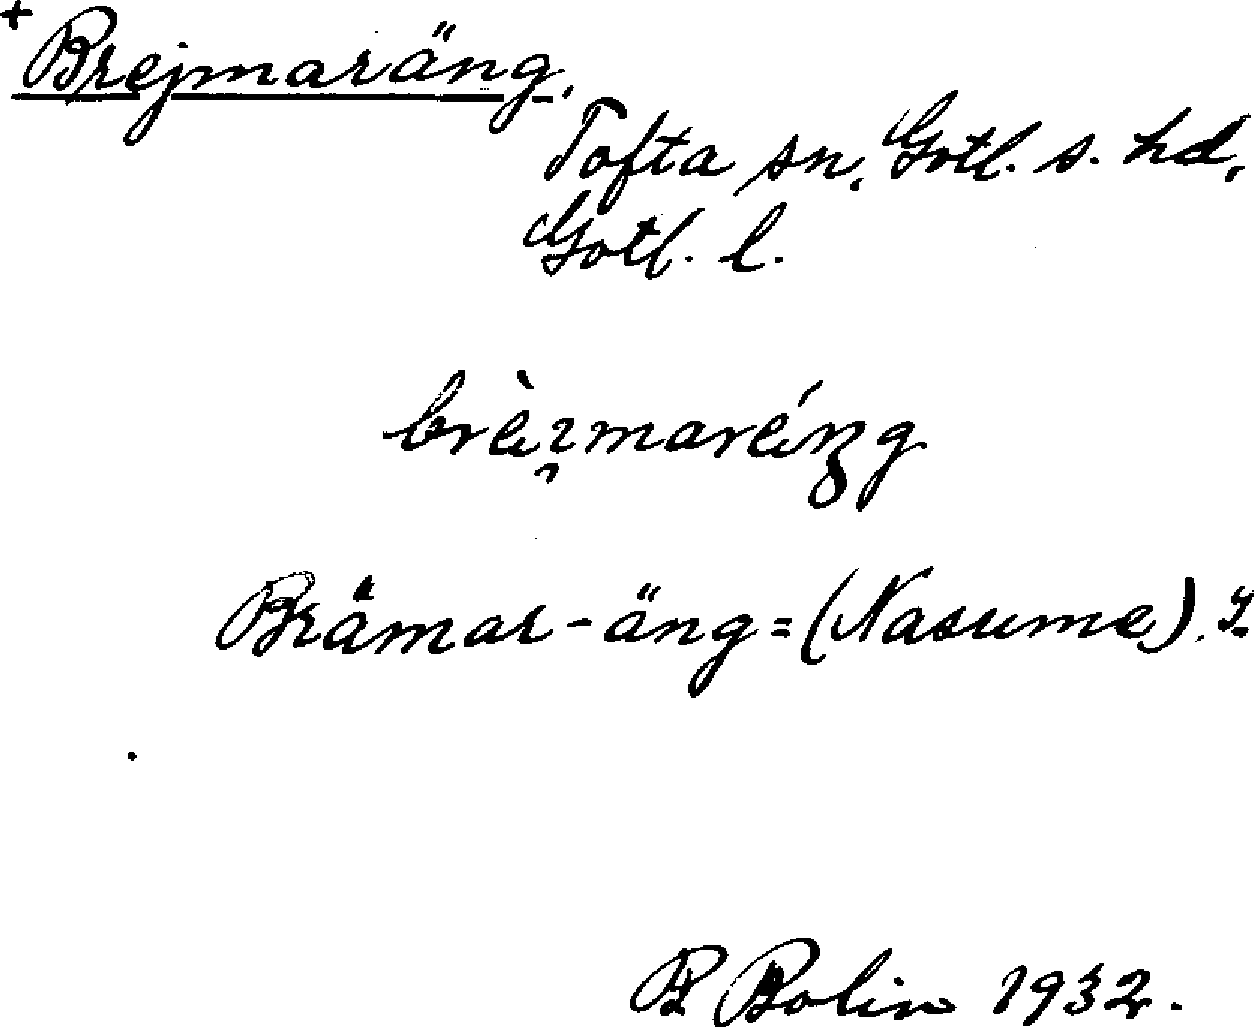 + Brejmaräng.
Tofta sn, Gotl. s. hd,
Gotl. l.
Bråmar-äng = (Nasume).
P Bolin 1932.